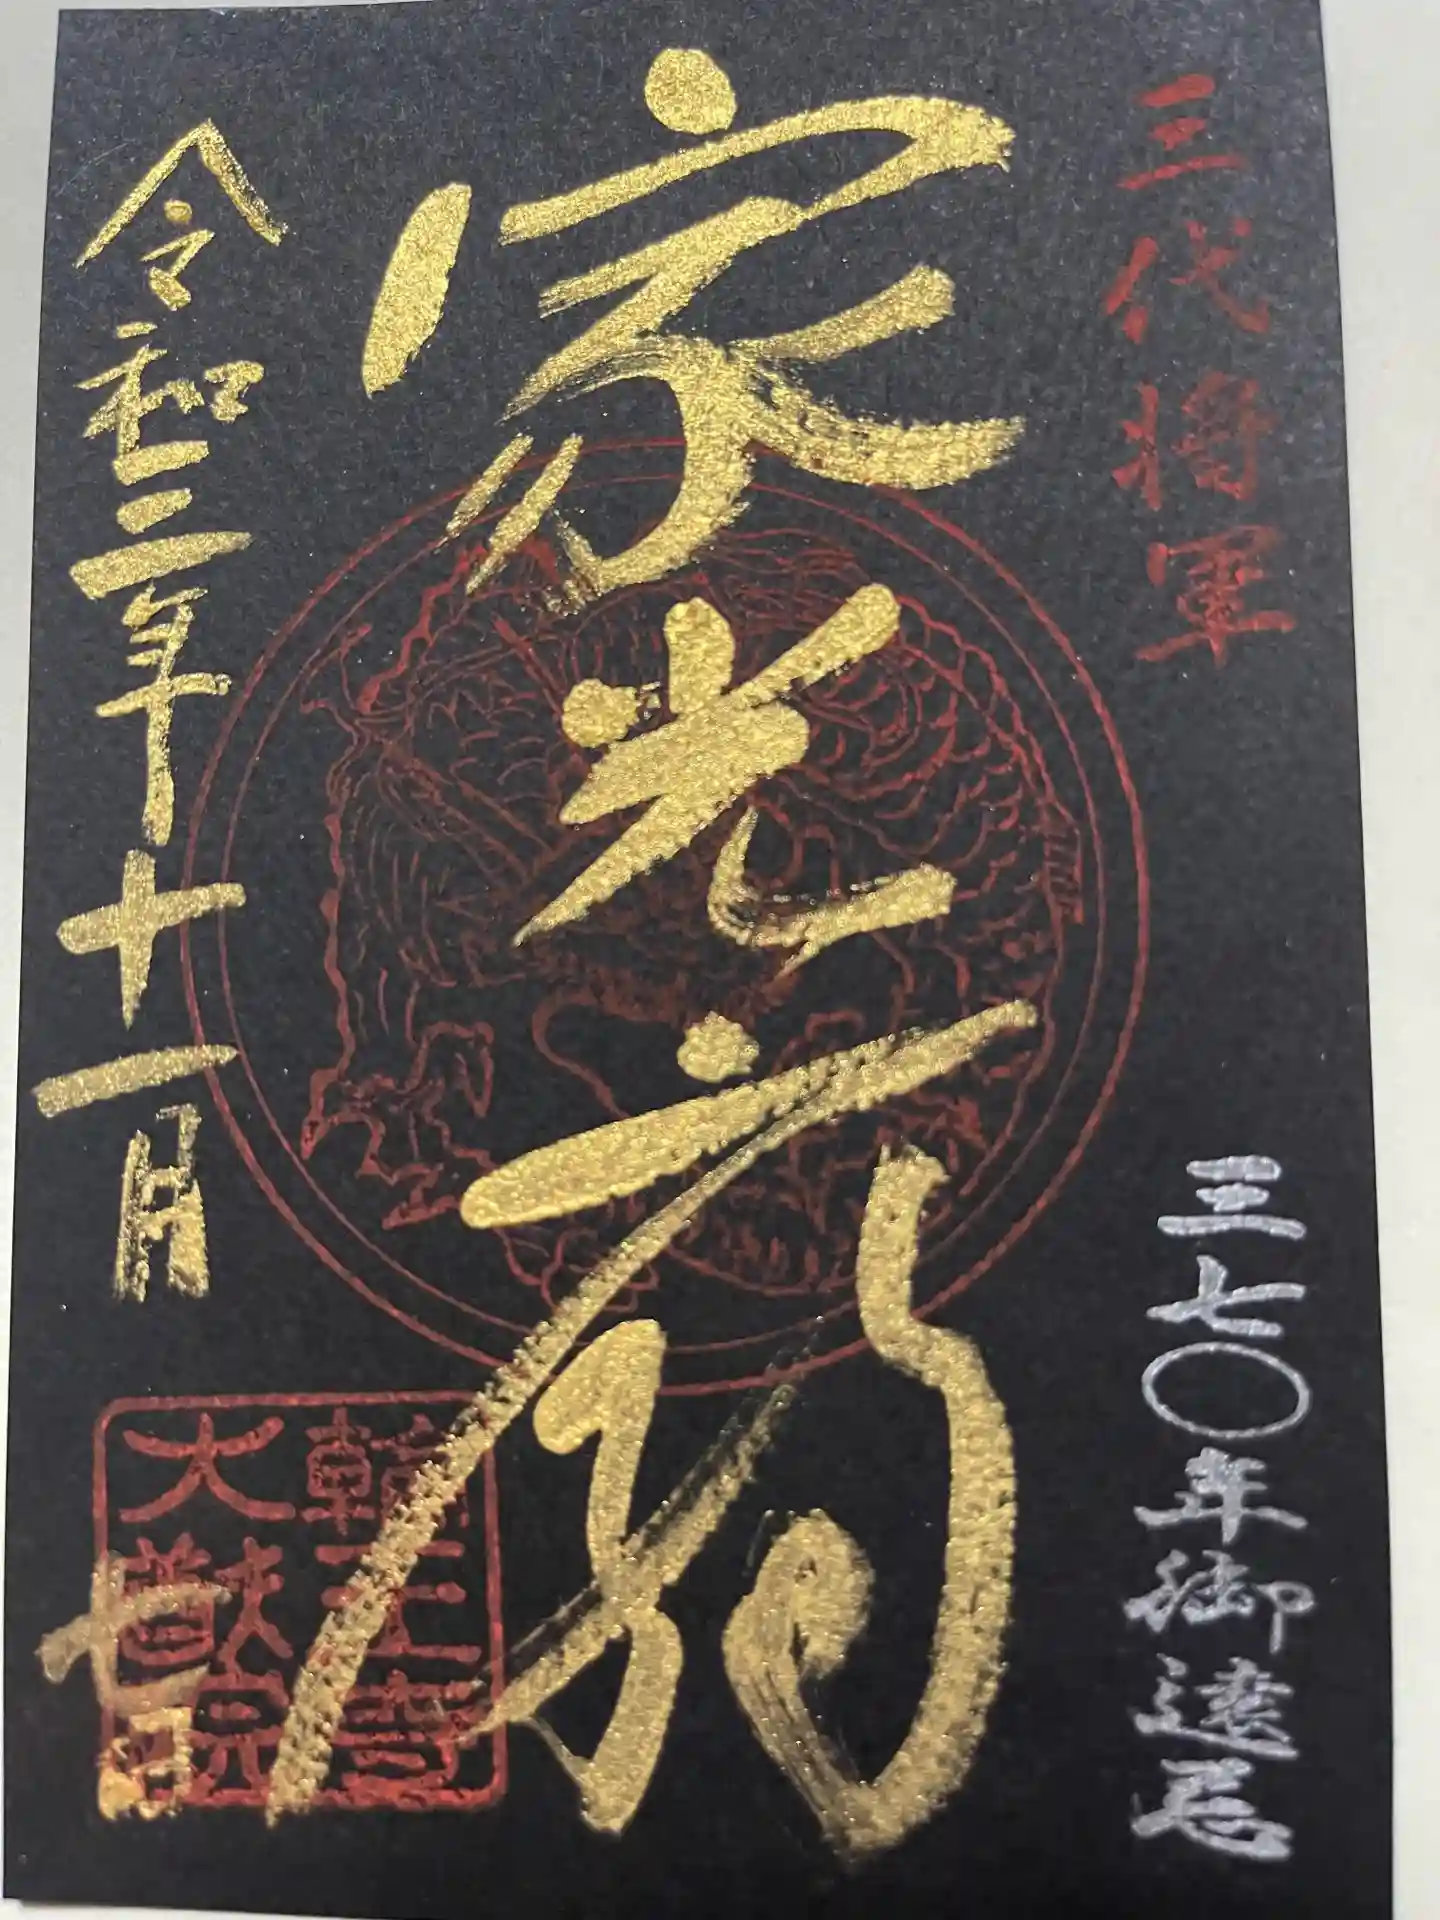 三代将軍
三七〇年御遠忌
家光公
令和三年十一月
七日
輪王寺
大猷院